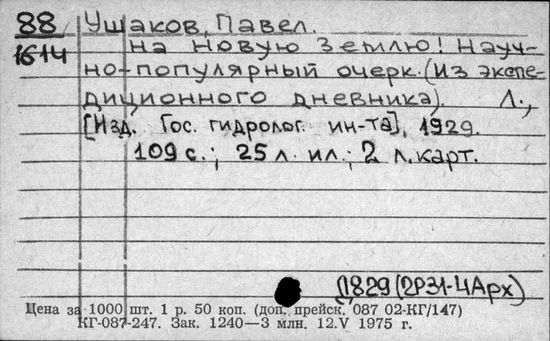 88 Ушаков, Павел.
1614 На Новую Землю! Науч-
но-популярный очерк. (Из экспе-
диционного дневника). Л.,
[Изд. Гос. гидролог. ин-та], 1929.
109 с.; 25 л. ил.; 2 л. карт.
Д829 (2Р31-4Арх)
Цена за 1000 шт. 1 р. 50 коп. (доп. прейск. 087 02-КГ/147)
КГ-087-247. Зак. 1240—3 млн. 12.V 1975 г.